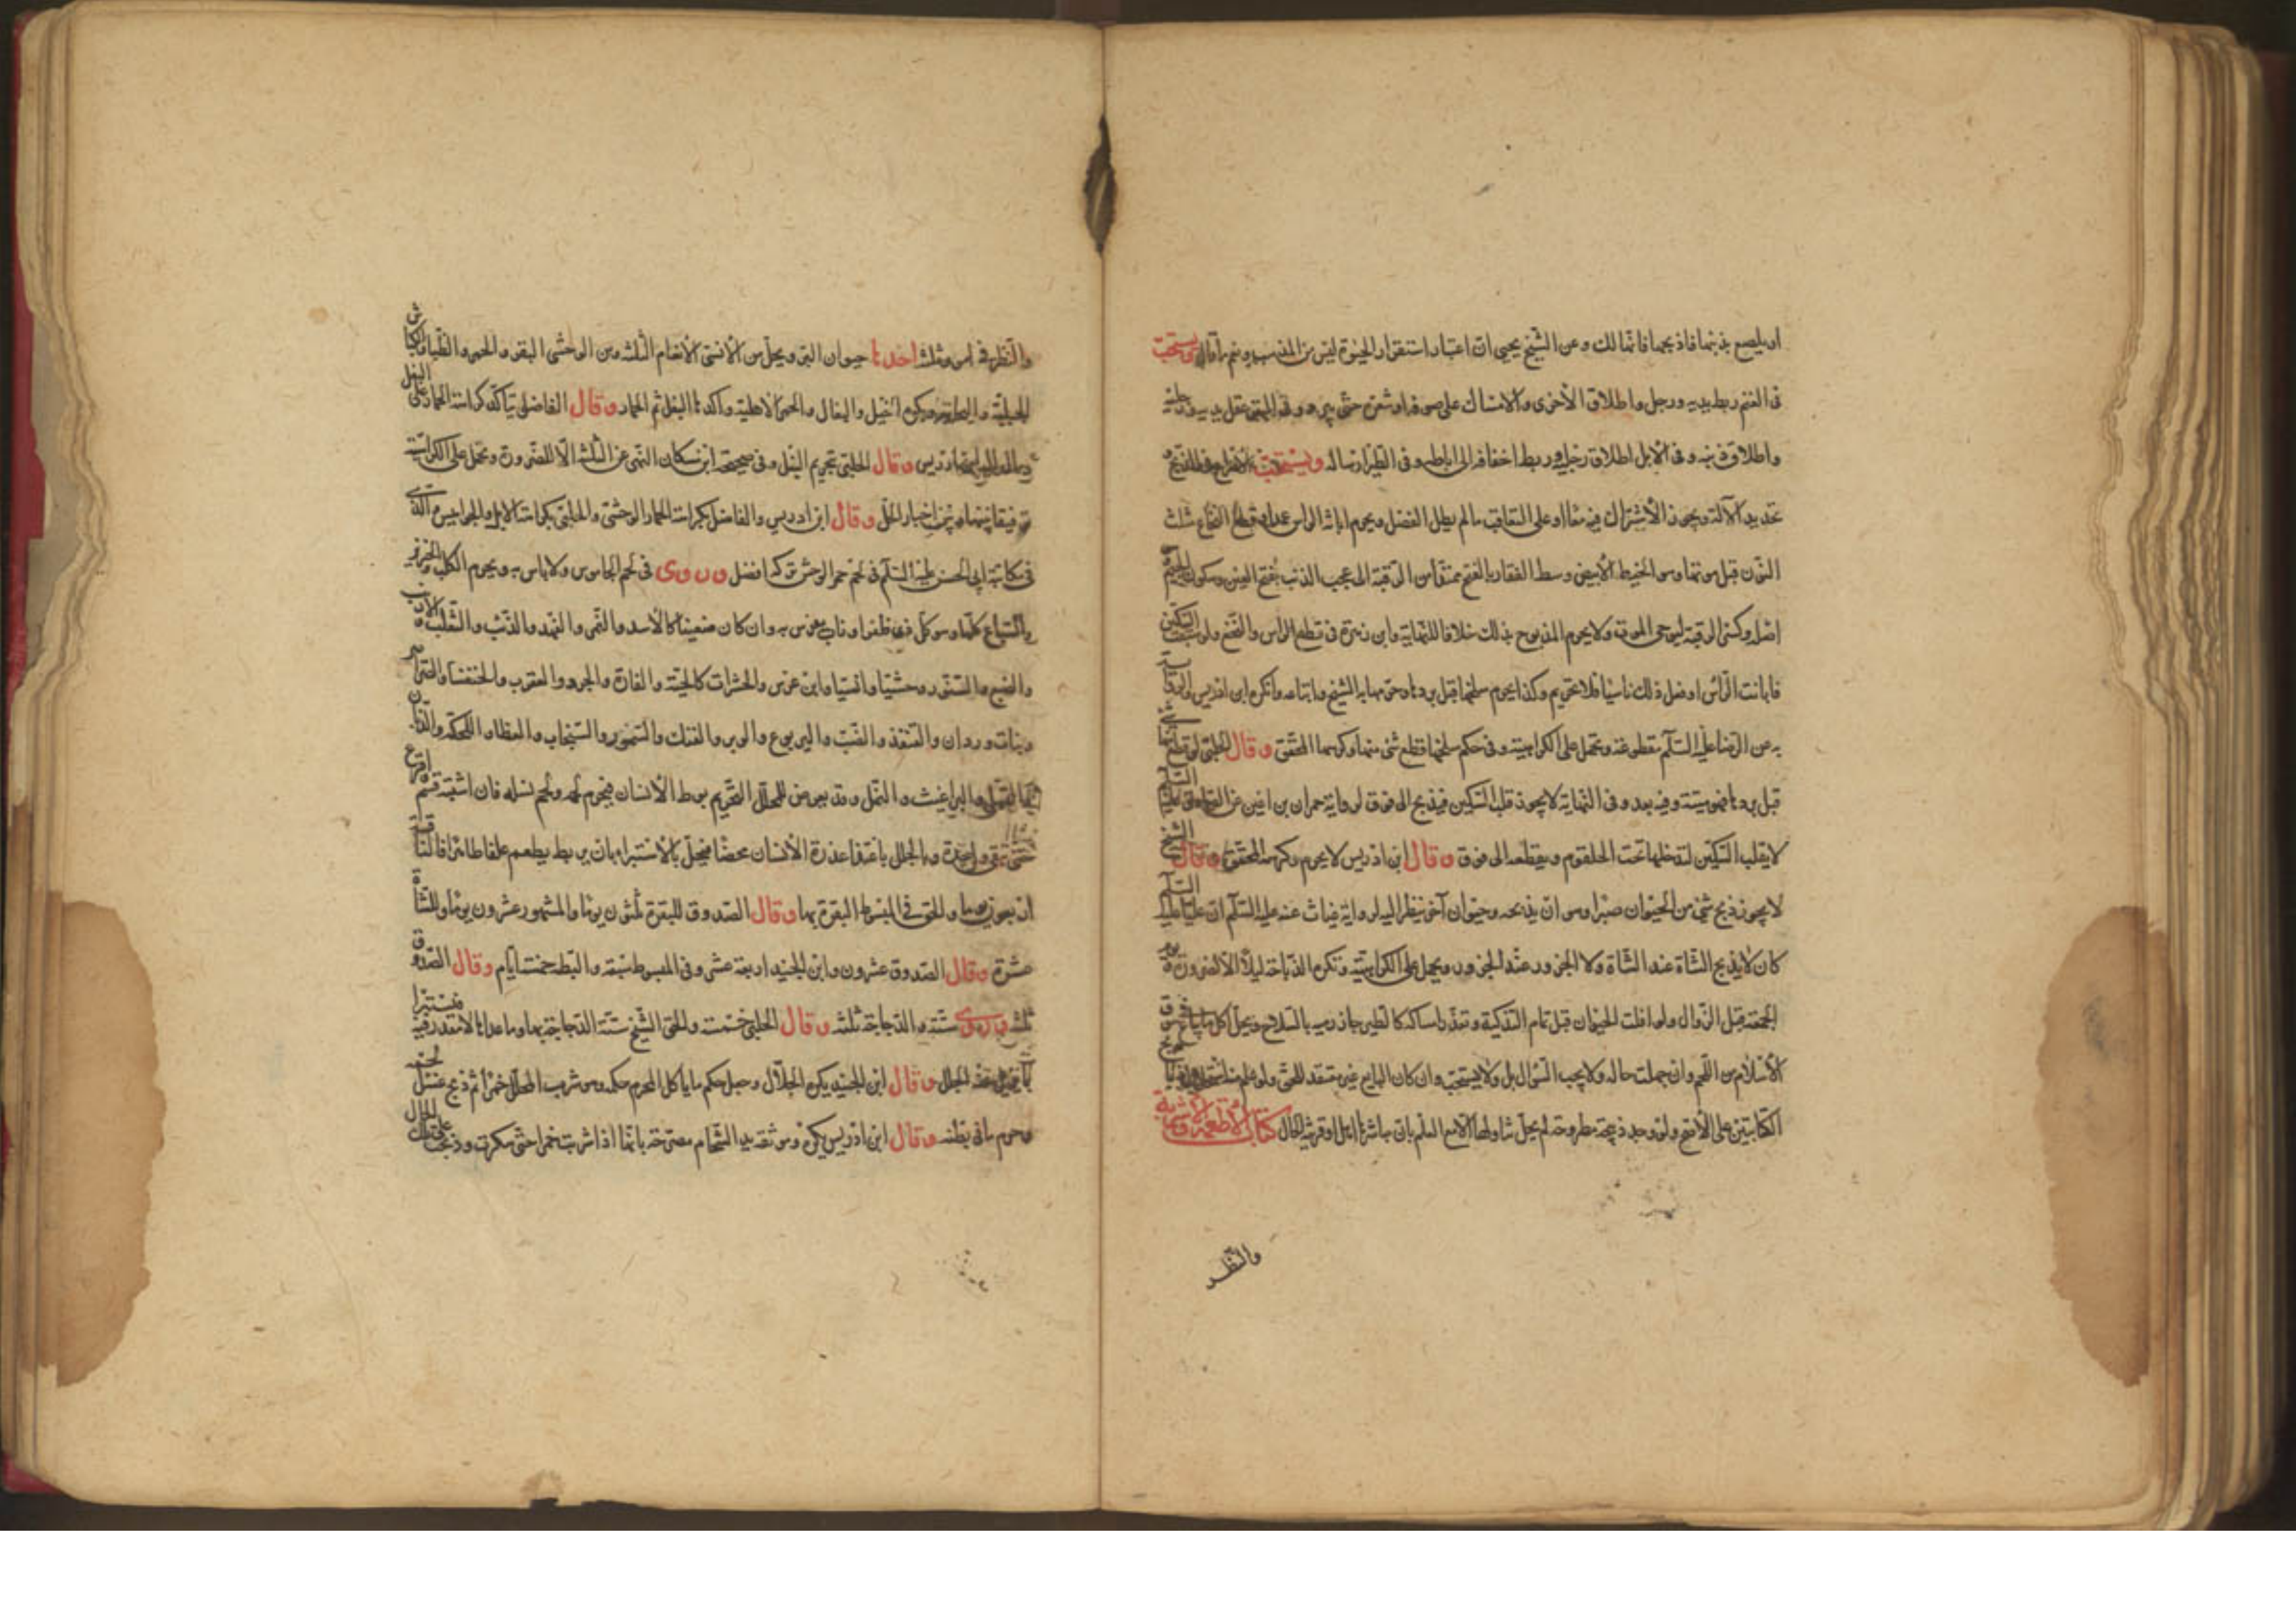 او يلصع بذنبها فاذبحها فانها لك وعن الشيخ يحيى ان اعتبار استقرار الحيوة ليس من المذهب ونعم ما قال ويستحب
فى الغنم ربط يديه ورجل واطلاق الأخرى والامساك على صوفه او شعره حتى يبرد وفى البقر عقل يديه ورجليه
واطلاق ذنبه وفى الابل اطلاق رجليه وربط اخفافه الى اباطه وفى الطير ارساله ويستحب الاسراع فى الذبح و
تحديد الآلة ويجوز الأشتراك فيه معا او على التعاقب ما لم يطل الفصل ويحرم ابانة الراس عمدا وقطع النخاع مثلث
النون قبل موتها وهو الخيط الأبيض وسط الفقار بالفتح ممتدا من الرقبة الى عجب الذنب بفتح العين وسكون الجيم
اصله وكسر الرقبة ليوحى الموت ولا يحرم المذبوح بذلك خلافا للنهاية وابن زهرة فى قطع الراس والنخع ولو سبقت السكين
فابانت الرأس او فعل ذلك ناسيا فلا تحريم وكذا يحرم سلخها قبل بردها وحرمها به الشيخ واتباعه وانكره ابن ادريس والرواية
به عن الرضا عليه السلم مقطوعة وتحمل على الكراهية وفى حكم سلخها قطع شئ منها وكرهها المحقق وقال الحلبى لو قطع شيئا منها
قبل بردها فهو ميتة وفيه بعد وفى النهاية لا يجوز قلب السكين فيذبح الى فوق لرواية حمران بن اعين عن الصادق عليه السلم
لا يقلب السكين لتدخلها تحت الحلقوم ويقطعه الى فوق وقال ابن ادريس لا يحرم وكرهه المحقق وقال الشيخ
لا يجوز ذبح شئ من الحيوان صبرا وهو ان يذبحه وحيوان آخر ينظر اليه لرواية غياث عنه عليه السلم ان عليا عليه السلم
كان لا يذبح الشاة عند الشاة ولا الجزور عند الجزور ويحمل على الكراهية وتكره الذباحة ليلا الا لضرورة ويوم
الجمعة قبل الزوال ولو افلت الحيوان قبل تمام التذكية وتعذر امساكه كالطير جاز رميه بالسلاح ويحل كل ما يباع فى سوق
الأسلام من اللحم وان جهلت حاله ولا يجب السؤال بل ولا يستحب وان كان البايع غير معتقد للحق ولو علم منه استحلال ذبايح
الكتابيين على الأصح ولو وجد ذبيحة مطروحة لم يحل تناولها الا مع العلم بان مباشرها اهل او قرينة الحال كتاب الأطعمة والأشربة
والنظر
والنظر فى امور ثلثة احدها حيوان البر ويحل من الأنسى الأنعام الثلثة ومن الوحشى البقر والحمر والظباء والكباش
الجبلية واليحامير ويكره الخيل والبغال والحمر الأهلية وآكدها البغل ثم الحمار وقال الفاضل يتاكد كراهة الحمار على البغل
وقال الحلبى بتحريم البغل وفى صحيحة ابن مسكان النهى عن الثلثة الا للضرورة وتحمل على الكراهية
توفيقا بينها وبين اخبار الحل وقال ابن ادريس والفاضل بكراهة الحمار الوحشى والحلبى بكراهة الابل والجواميس والذى
فى مكاتبة ابى الحسن عليه السلم فى لحم حمر الوحش تركه افضل وروى فى لحم الجاموس ولا باس به ويحرم الكلب والخنزير
والسباع كلها وهو كل ذى ظفر او ناب يفرس به وان كان ضعيفا كالأسد والنمر والفهد والذئب والثعلب والأرنب
والضبع والسنور وحشيا وانسيا وابن عرس والحشرات كالحية والفارة والجرد والعقرب والخنفساء والصراصر
وبنات وردان والقنفذ والضب واليربوع والوبر والفنك والسمور والسنجاب والعظاه واللحكة والذبان
والبراغيث والنمل وقد يعرض للمحلل التحريم بوطء الأنسان فيحرم لحمه ولحم نسله فان اشتبه قسم
حتى تبقى واحدة وبالجلل باغتذاء عذرة الأنسان محضا فيحل بالأستبراء بان يربط ويطعم علفا طاهرا فالناقة
اربعون يوما والحق فى المبسوط البقرة بها وقال الصدوق للبقرة ثلثون يوما والمشهور عشرون يوما وللشاة
عشرة وقال الصدوق عشرون وابن الجنيد اربعة عشر وفى المبسوط سبعة والبطة خمسة ايام وقال الصدوق
ثلثة وروى ستة والدجاجة ثلثة وقال الحلبى خمسة والحق الشيخ ستة الدجاجة بها وما عداها لا مقدر فيه فيستبرا
بما يزيل عنه الجلل وقال ابن الجنيد يكره الجلال وجعل حكم ما ياكل المحرم حكمه ومن شرب المحلل خمرا ثم ذبح غسل لحمه
وحرم ما فى بطنه وقال ابن ادريس يكره وموثقة زيد الشحام مصرحة بانها اذا شربت خمرا حتى سكرت وذبحت على تلك الحال